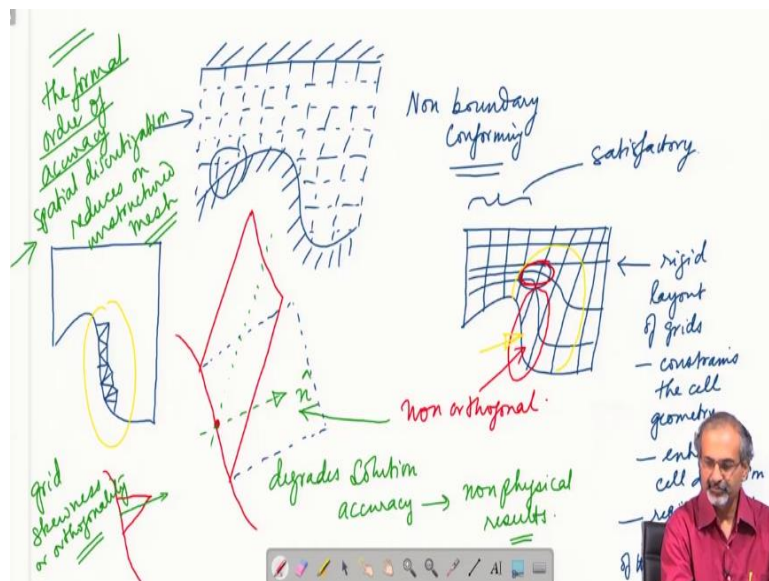 the formal
order of
accuracy
spatial discretization
reduces on
unstructured
mesh
Non boundary
Conforming
satisfactory
rigid
layout
of grids
- constrains
the cell
geometry
- enh
cell d
Non orthogonal.
n̂
degrades solution
accuracy → nonphysical
results.
grid
skewness
or orthogonality
AI